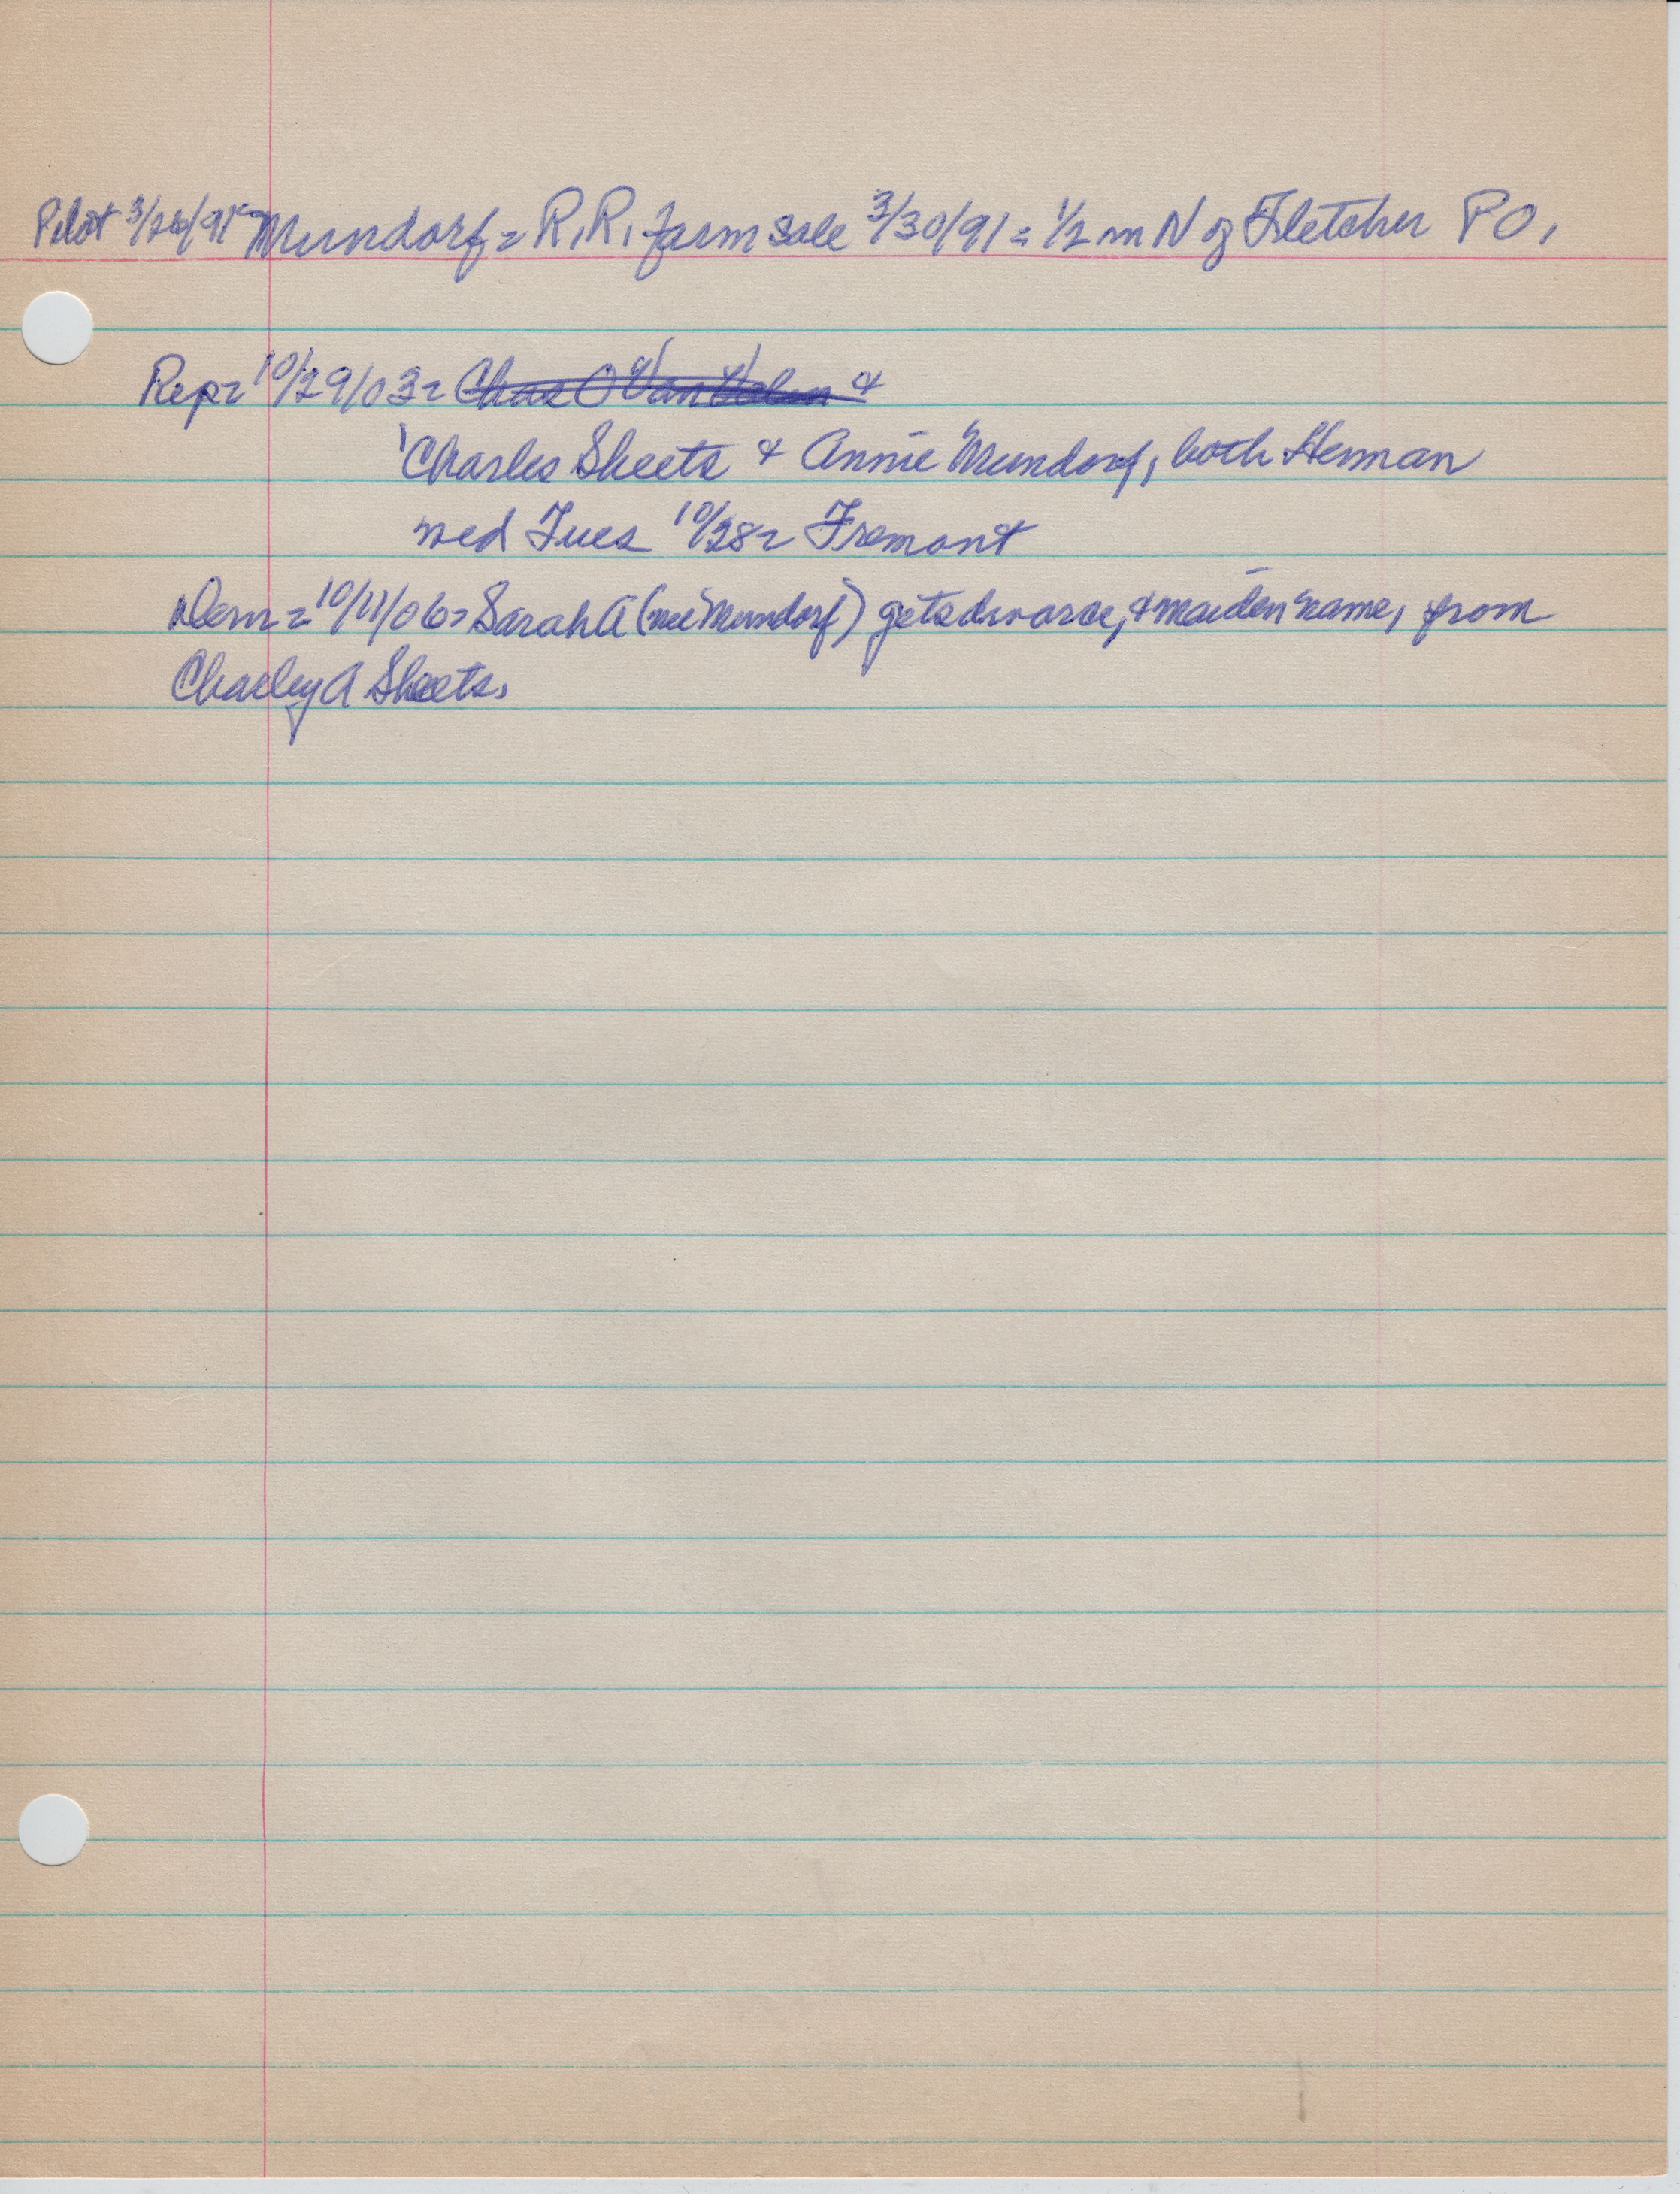 Pilot 3/26/91= Mundorf = R.R. farm sale 3/30/91 = 1/2 m N of Fletcher PO.
Rep= 10/29/03= Chas O Van &
Charles Sheets & Annie Mundorf, both Herman
wed Tues 10/28= Fremont
Dem= 10/11/06= Sarah A (nee Mundorf) gets divorce, & maiden name, from
Charley A Sheets.